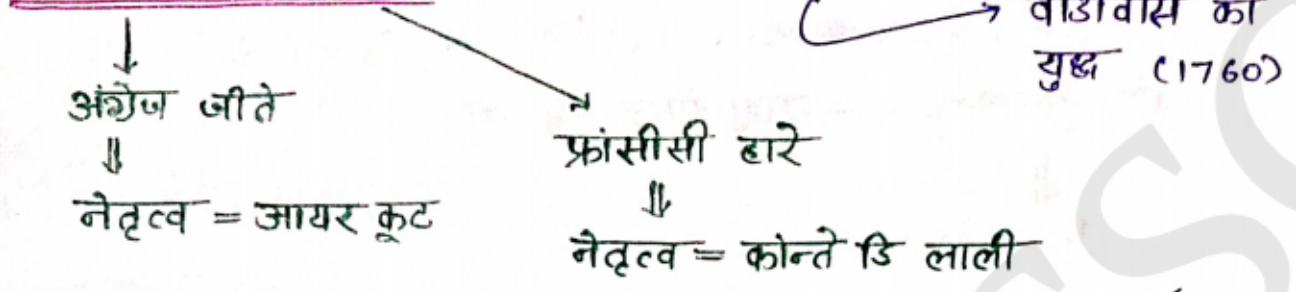 → वांडीवास का
युद्ध (1760)
↓
अंग्रेज जीते
⇓
नेतृत्व = आयर कूट
फ्रांसीसी हारे
⇓
नेतृत्व = कोन्ते डि लाली